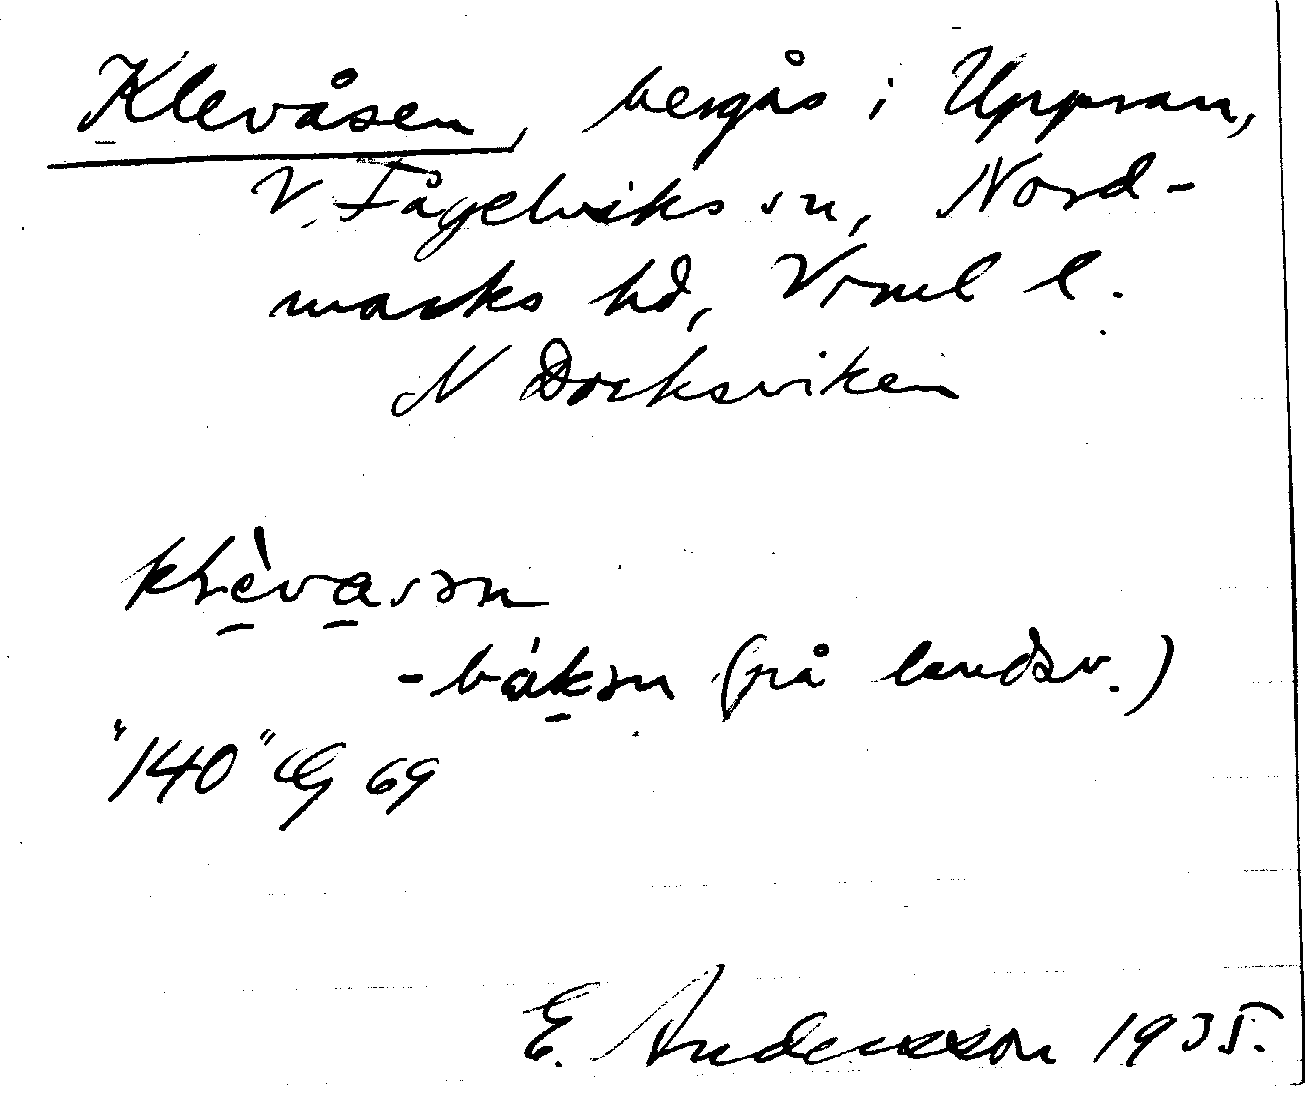 Klevåsen, bergås i Uppran,
V. Fågelviks sn, Nord-
marks hd, Vrml l.
N Dorksviken
klèvasən
-bákən (på landsv.)
"140" CG 69
E. Andersson 1935.